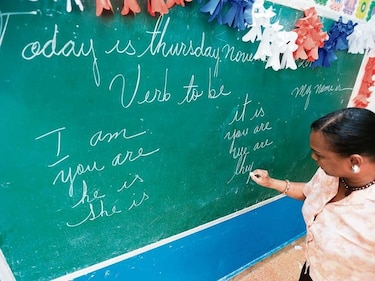 Today is Thursday Novem
Verb to be
My name is
I am
you are
he is
she is
it is
you are
we are
they